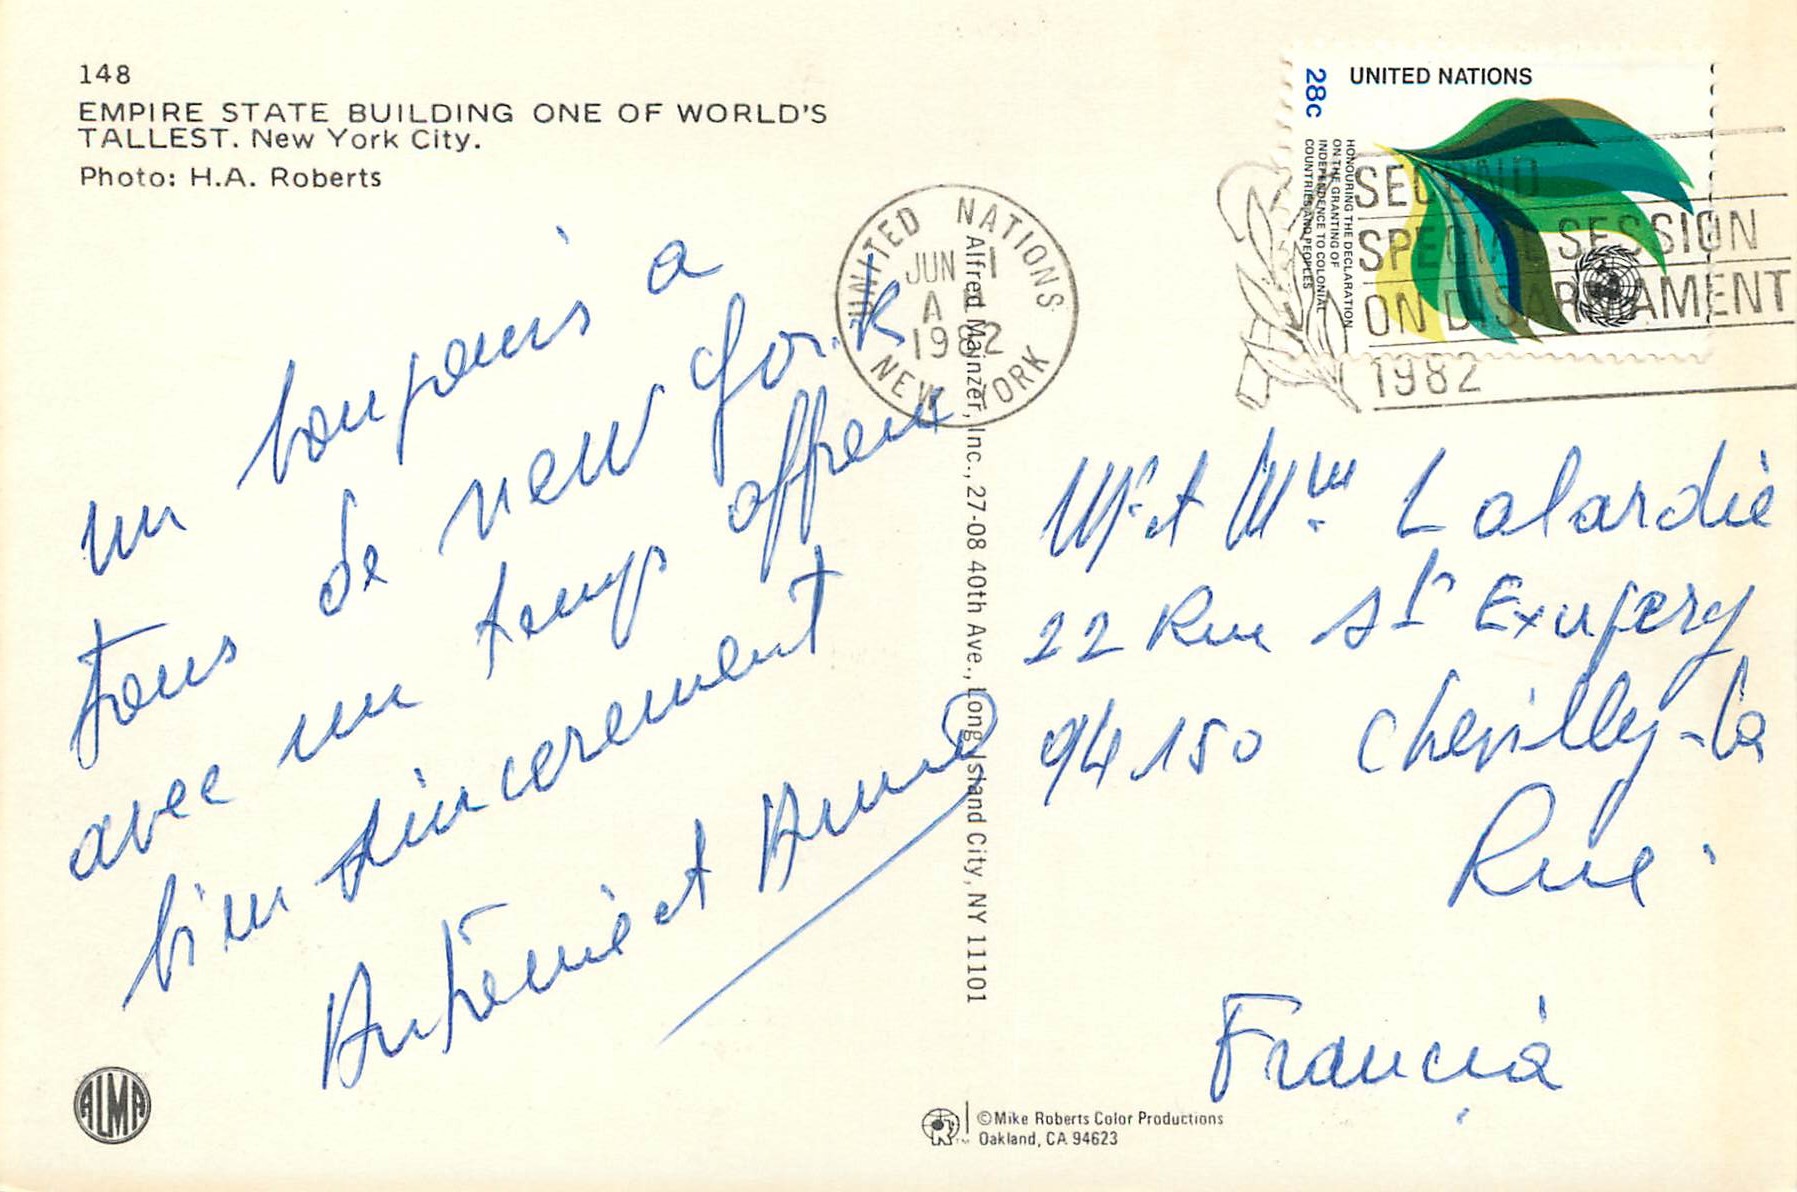 148
EMPIRE STATE BUILDING ONE OF WORLD'S
TALLEST. New York City.
Photo: H.A. Roberts
un bonjour a
tous de new York
avec un temps affreux
bien sincerement
Antoine et Anna
UNITED NATIONS
JUN 1
A
1982
NEW YORK
28c
UNITED NATIONS
HONOURING THE DECLARATION
ON THE GRANTING OF
INDEPENDENCE TO COLONIAL
COUNTRIES AND PEOPLES
SECOND
SPECIAL SESSION
ON DISARMAMENT
1982
Alfred Mainzer, Inc., 27-08 40th Ave., Long Island City, NY 11101
Mr et Mme Lalardie
22 Rue St Exupery
94150 Chevilly-la
Rue
Francia
ALMA
©Mike Roberts Color Productions
Oakland, CA 94623